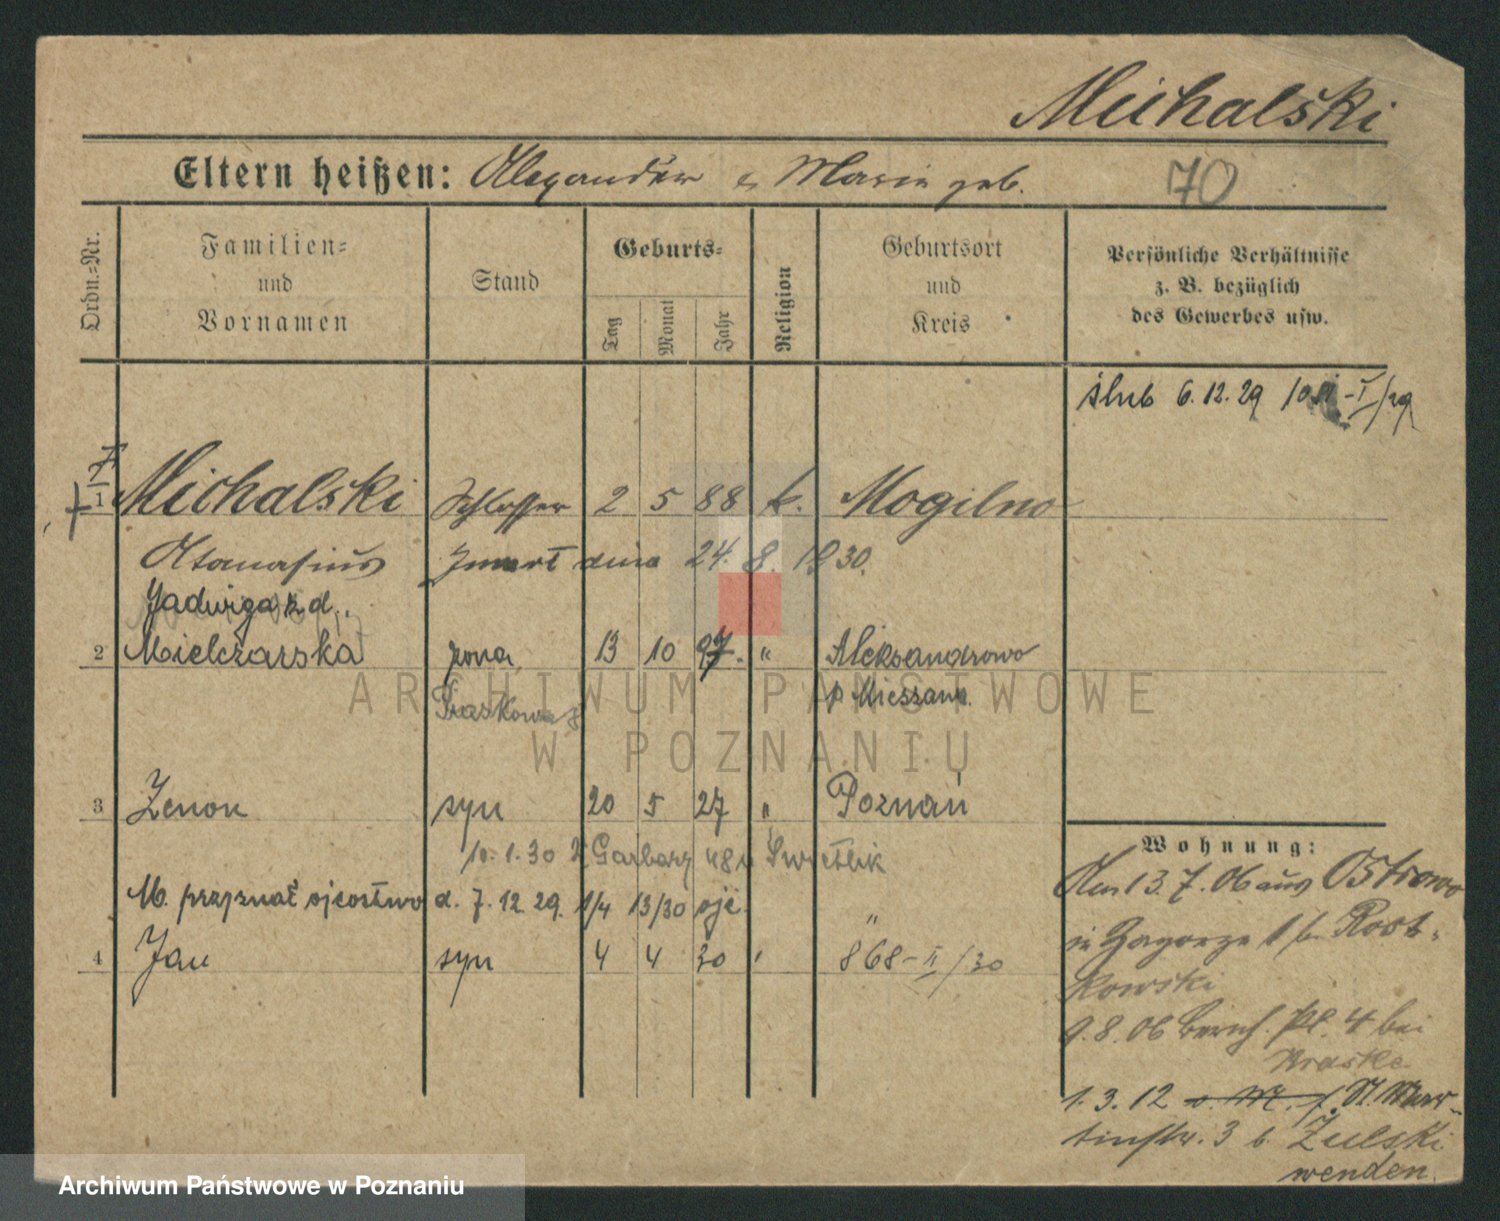 Michalski
Eltern heißen: Alexander & Marie geb. 70
Ordn.=Nr.
Familien=
und
Vornamen
Stand
Geburts=
Tag
Monat
Jahr
Religion
Geburtsort
und
Kreis
Persönliche Verhältnisse
z. B. bezüglich
des Gewerbes usw.
ślub 6.12.29
1 Michalski Schlosser 2 5 88 k. Mogilno
Atanasius Zmarł dnia 24. 8. 1930.
Jadwiga z d.
2 Mielczarska żona 13 10 97. " Aleksandrowo
p Nieszawa
3 Zenon syn 20 5 27 " Poznań
10.1.30 Garbary 48 Swietlik
M. przyznał ojcostwo d. 7.12.29. 1/4 13/30
4 Jan syn 4 4 30 " 868-II/30
Wohnung:
Am 13.7.06 aus Ostrowo
in Zagorze 1 b. Rost-
kowski
9.8.06 Bernh. Pl. 4 bei
1.3.12 St. Mar-
tinstr. 3 b. Zulski
wenden.
ARCHIWUM PAŃSTWOWE
W POZNANIU
Archiwum Państwowe w Poznaniu